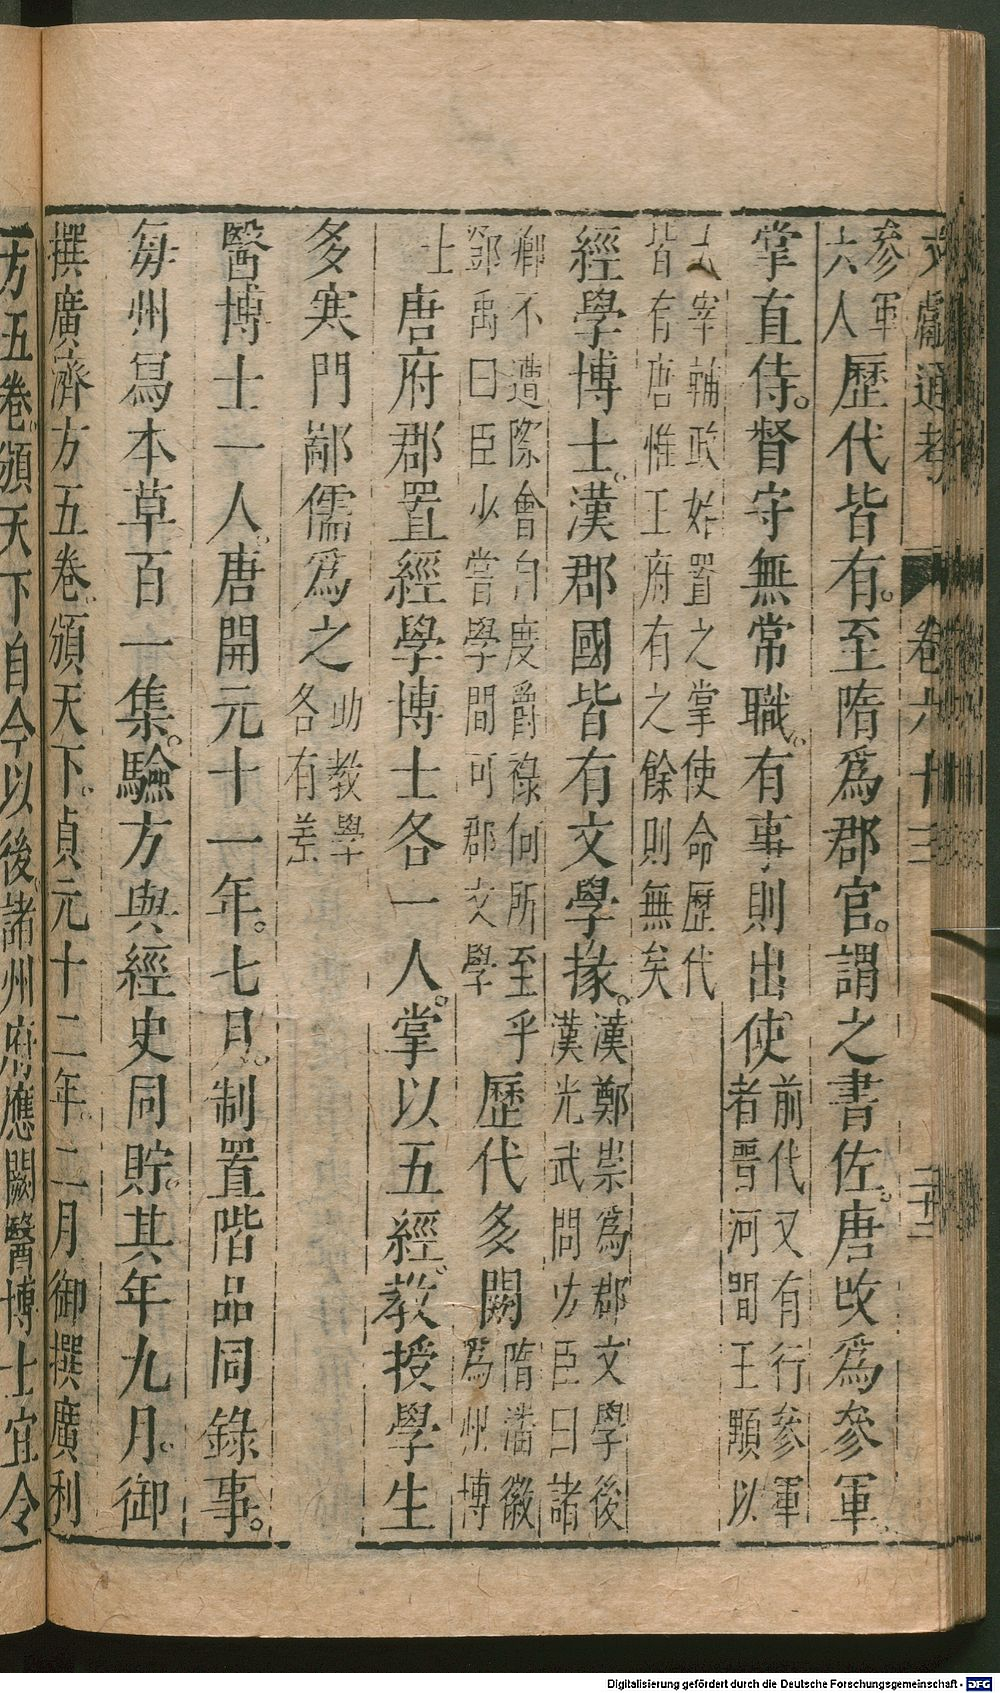 文獻通考 卷六十三 二十二
參軍六人歷代皆有。至隋爲郡官。謂之書佐。唐改爲參軍
掌直侍。督守無常職。有事則出使前代又有行參軍者晋河間王顒以
太宰輔政始置之掌使命歷代皆有唐惟王府有之餘則無矣
經學博士。漢郡國皆有文學掾。漢鄭崇爲郡文學後漢光武問功臣曰諸
卿不遭際會自度爵祿何所至乎鄧禹曰臣少嘗學問可郡文學歷代多闕隋潘徽爲州博
士唐府郡置經學博士各一人。掌以五經教授學生
多寒門鄙儒爲之助教學各有差
醫博士一人。唐開元十一年。七月。制置階品同錄事。
每州寫本草百一集。驗方與經史同貯。其年九月。御
撰廣濟方五卷。頒天下。貞元十二年。二月御撰廣利
方五卷。頒天下自今以後。諸州府應闕醫博士宜令
Digitalisierung gefördert durch die Deutsche Forschungsgemeinschaft - DFG